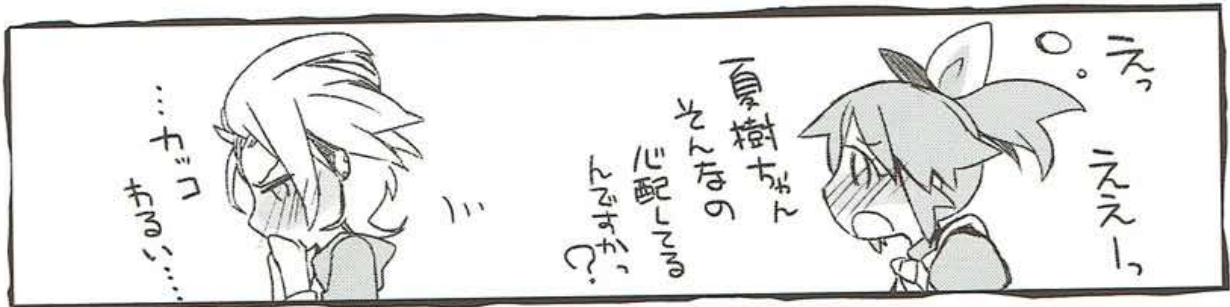 えっ
ええーっ
夏樹ちゃん
そんなの
心配してる
んですかっ
?
…カッコ
わるい……